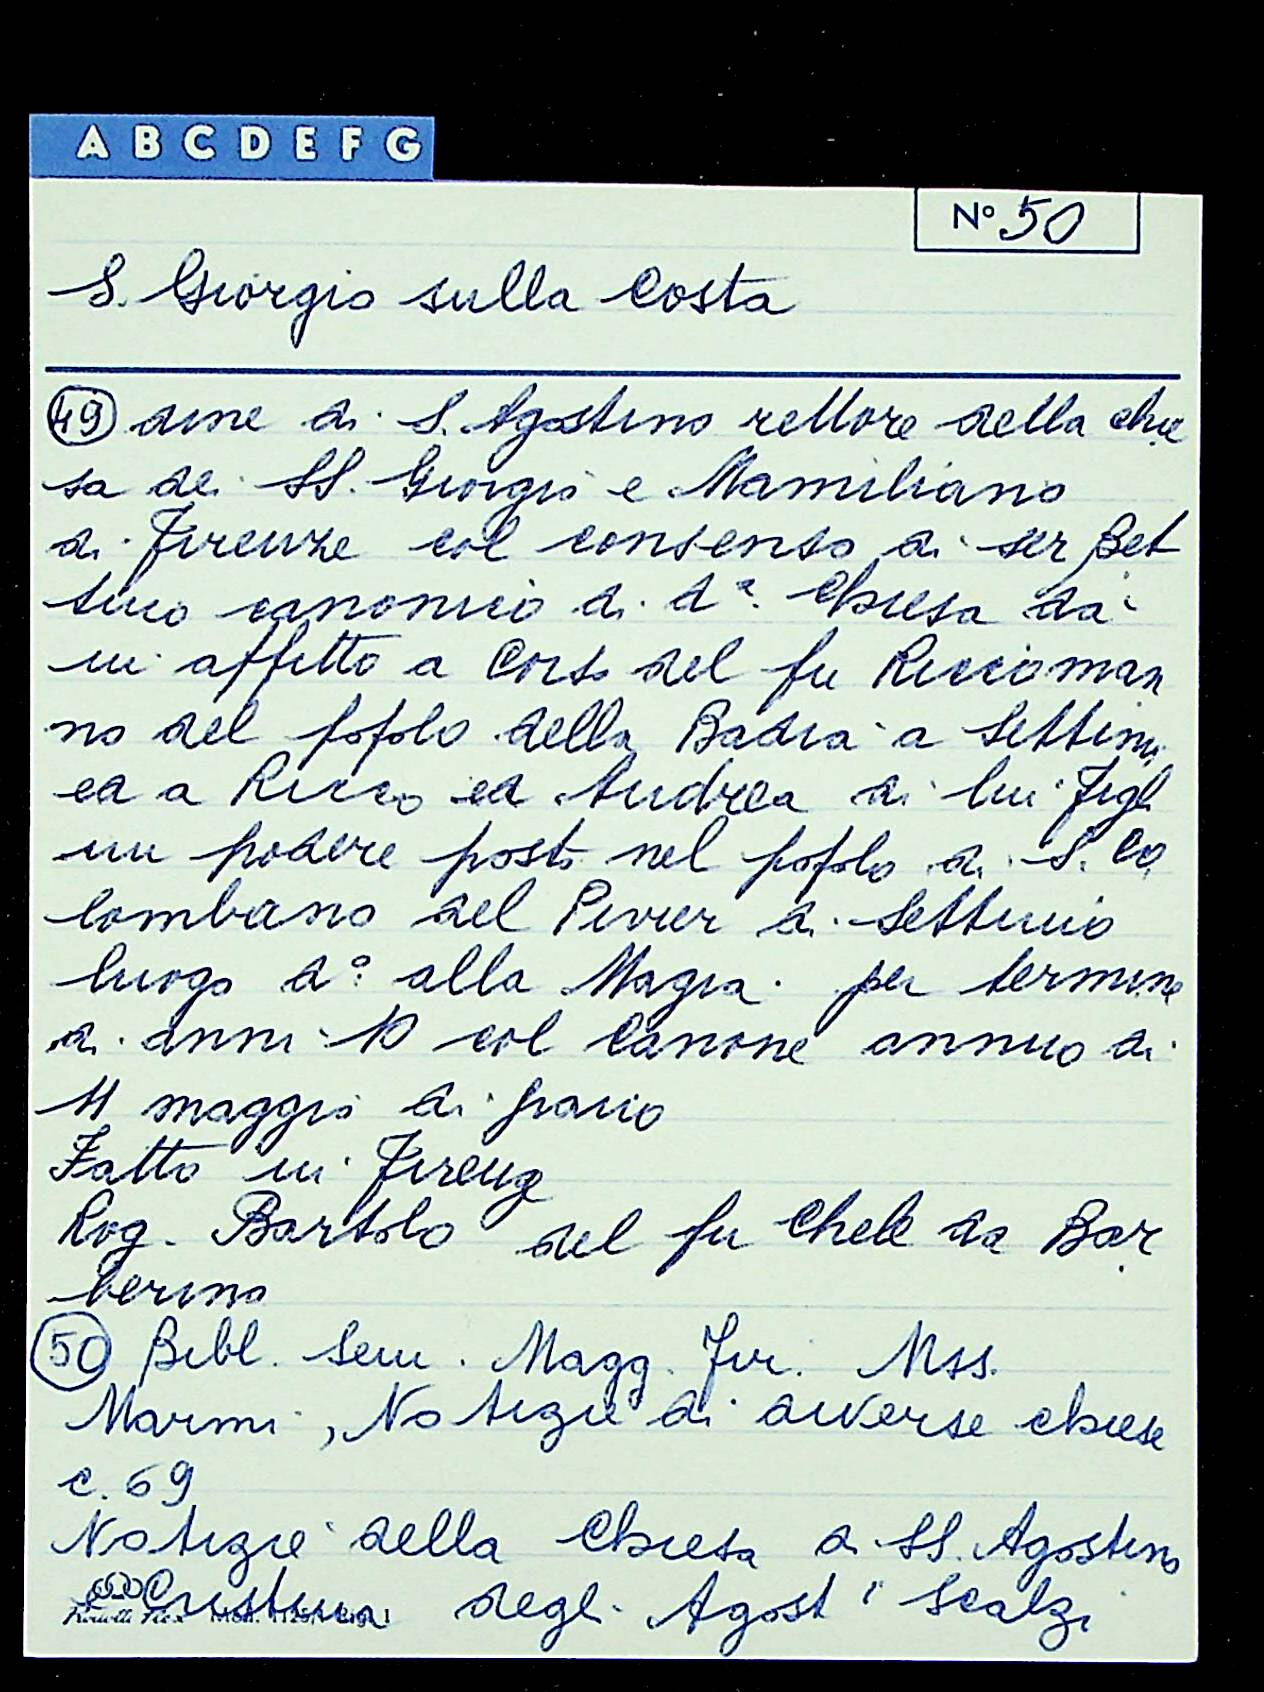 A B C D E F G
Nº 50
S. Giorgio sulla Costa
49 dine di S. Agostino rettore della chie
sa dei SS. Giorgio e Mamiliano
di Firenze col consenso di ser Bet
tino canonico di dª. Chiesa dà
in affitto a Corso del fu Riccoman
no del popolo della Badia a Settimo
ed a Ricco ed Andrea di lui Figl
un podere posto nel popolo di S. Co
lombano del Pivier di Settimo
luogo dº: alla Magia per termine
di anni 10 col Canone annuo di
11 moggio di grano
Fatto in Firenze
Rog. Bartolo del fu Chele da Bar
berino
50 Bibl. Sem. Magg. Fir. Mss.
Marmi, Notizie di diverse chiese
c. 69
Notizie della Chiesa di SS. Agostino
e Cristina degl. Agostⁱ Scalzi